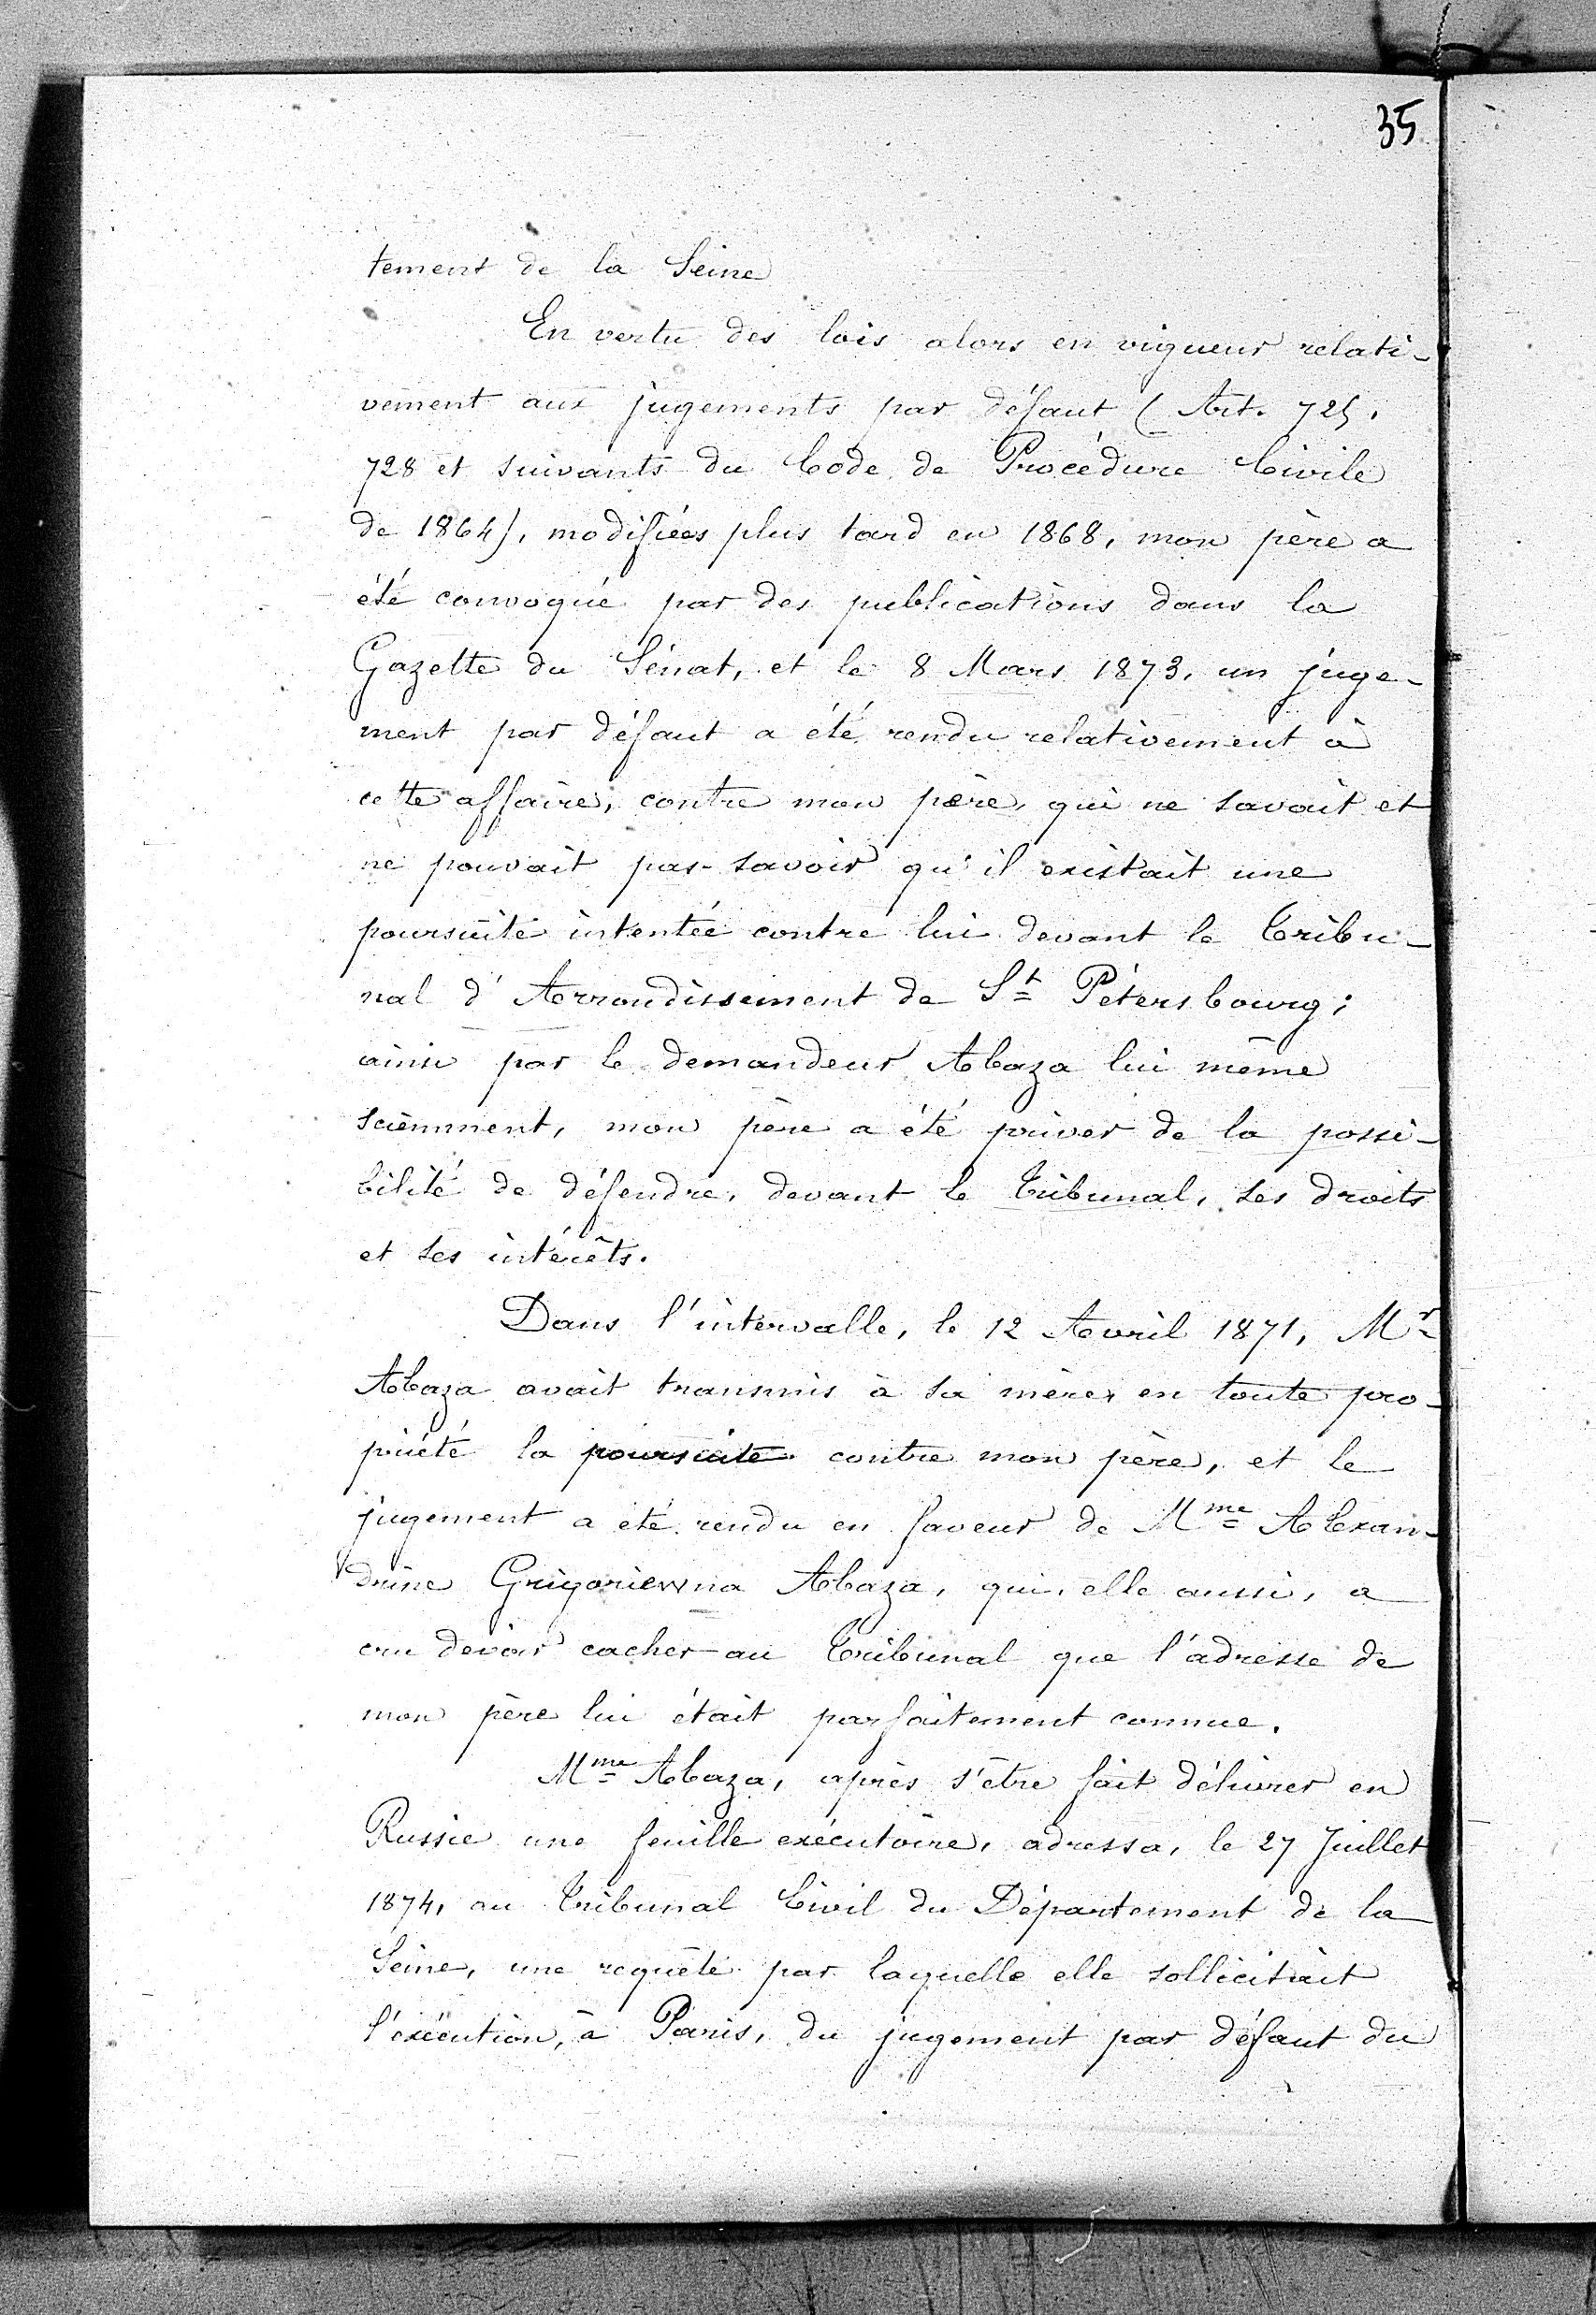 35
tement de la Seine
En vertu des lois alors en vigueur relati-
vement aux jugements par défaut (Art. 725.
728 et suivants du Code de Procédure Civile
de 1864), modifiées plus tard en 1868, mon père a
été convoqué par des publications dans la
Gazette du Sénat, et le 8 Mars 1873, un juge-
ment par défaut a été rendu relativement à
cette affaire, contre mon père, qui ne savait et
ne pouvait pas savoir qu'il existait une
poursuite intentée contre lui devant le Tribu-
nal d'Arrondissement de St Pétersbourg;
ainsi par le demandeur Abaza lui même
sciemment, mon père a été priver de la possi-
bilité de défendre, devant le Tribunal, ses droits
et ses intérêts.
Dans l'intervalle, le 12 Avril 1871, Mr
Abaza avait transmis à sa mère, en toute pro-
priété la poursuite contre mon père, et le
jugement a été rendu en faveur de Mme Alexan-
drine Grigoriewna Abaza, qui, elle aussi, a
cru devoir cacher au Tribunal que l'adresse de
mon père lui était parfaitement connue.
Mme Abaza, après s'être fait délivrer en
Russie une feuille exécutoire, adressa, le 27 Juillet
1874, au Tribunal Civil du Département de la
Seine, une requête par laquelle elle sollicitait
l'exécution, à Paris, du jugement par défaut du